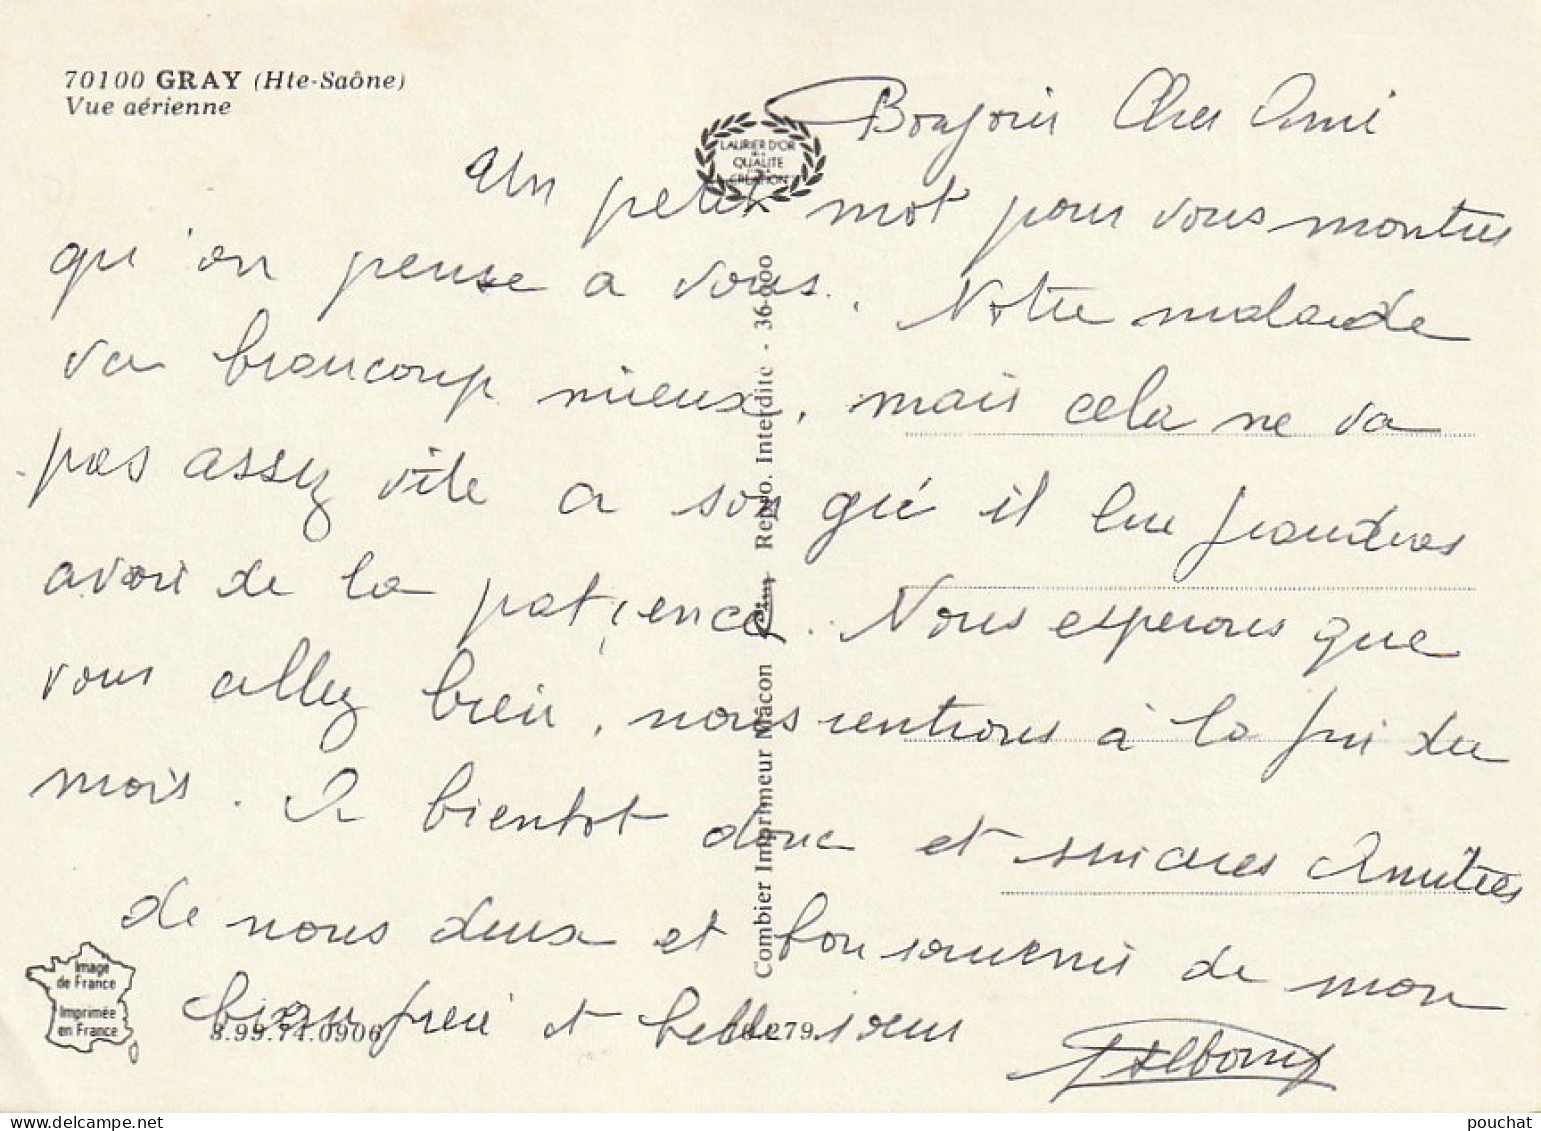 70100 GRAY (Hte-Saône)
Vue aérienne
LAURIER D'OR
DE LA
QUALITE
CREATION
Bonjour Cher Ami
Un petit mot pour vous montrer
qu'on pense a vous. Notre malade
va beaucoup mieux, mais cela ne va
pas assez vite a son gré il lui faudras
avoir de la patience. Nous esperons que
vous allez bien, nous rentrons à la fin du
mois. A bientot donc et sincères Amitiés
de nous deux et bon souvenir de mon
beau frere et belle soeur
Combier Imprimeur Mâcon
Repro. Interdite - 36-000
Image
de France
Imprimée
en France
3.99.74.0906
279
pouchat